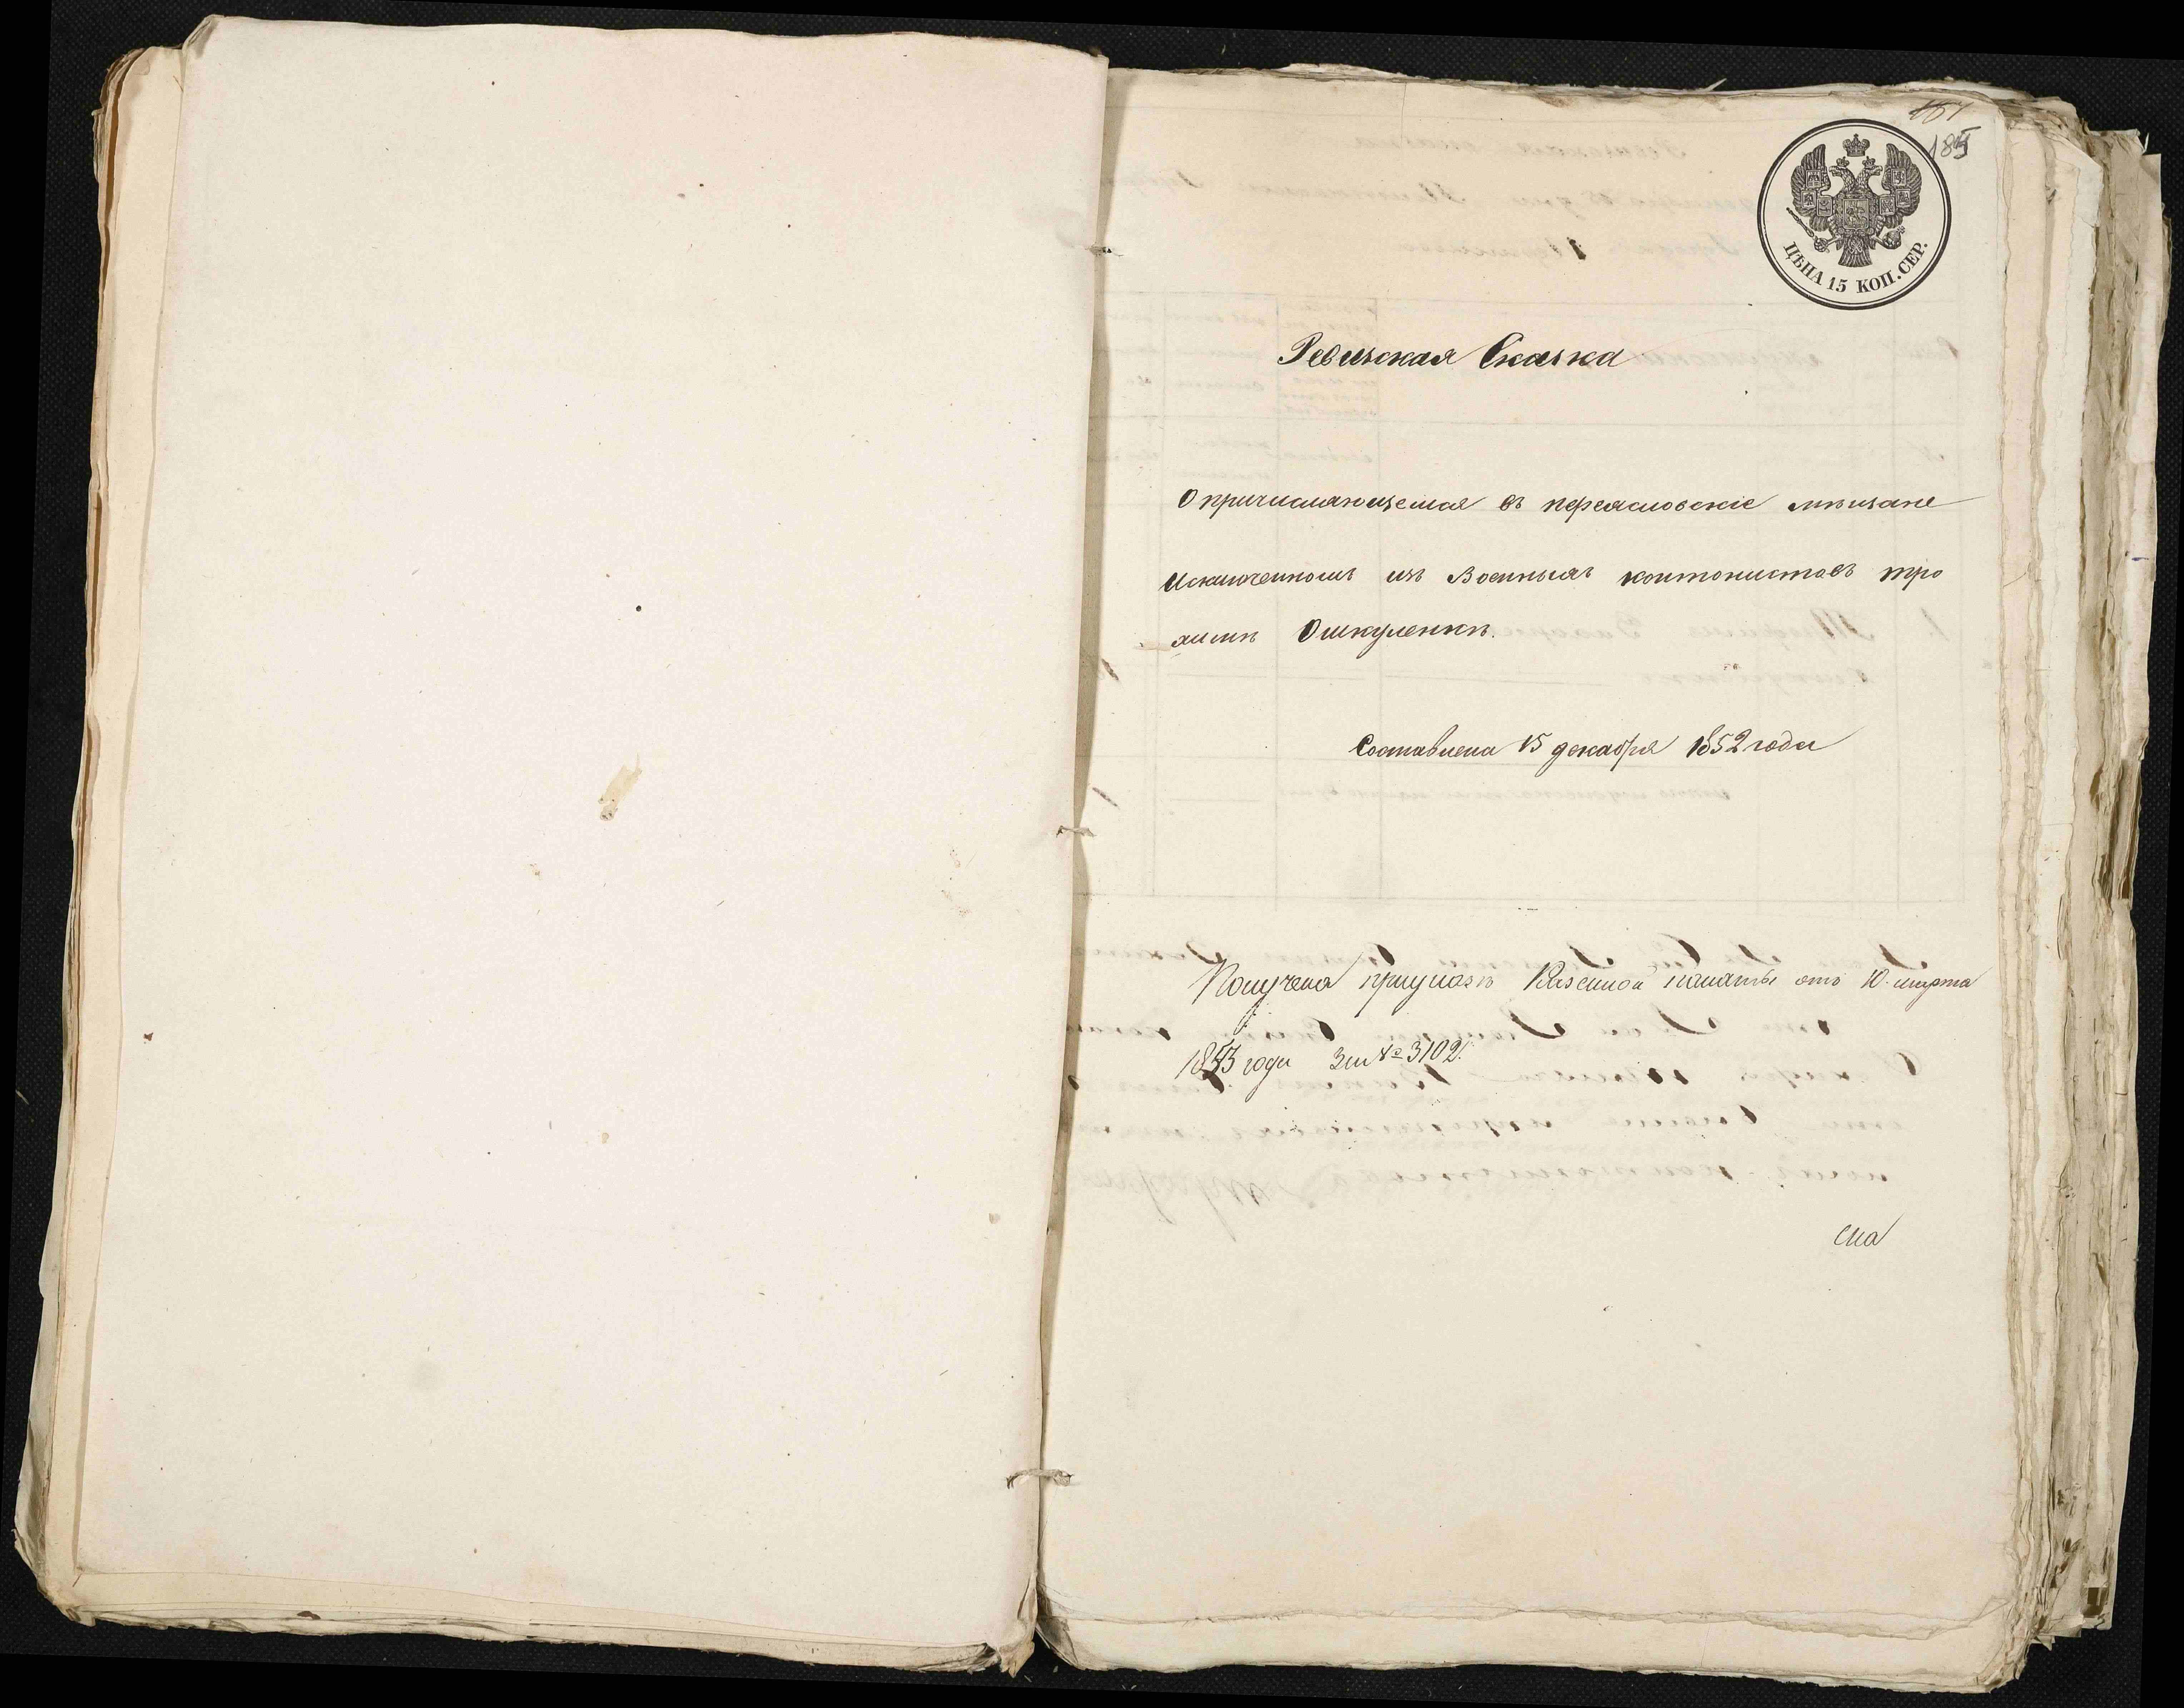 167
185
ЦѢНА 15 КОП. СЕР.
Ревизская Сказка
О причисляющемся въ переясловские мѣщане
Исключенномъ изъ Военныхъ контонистовъ тро
химѣ Ошкуленкѣ.
Составлена 15 декабря 1852 года
Получена приуказѣ Казенной палаты отъ 10 марта
1853 года За № 3102.